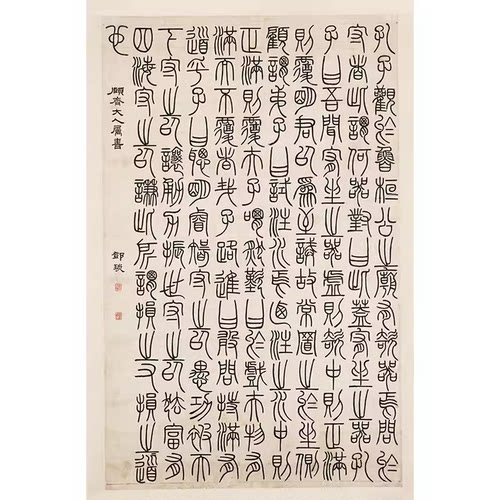 孔子觀於魯桓公之廟有欹器焉問於
守者此謂何器對曰此蓋宥坐之器孔
子曰吾聞宥坐之器虛則欹中則正滿
則覆明君以為至誡故常置之於坐側
顧謂弟子曰試注水焉乃注之水中則
正滿則覆夫子喟然歎曰於戲夫物有
滿而不覆者哉子路進曰敢問持滿有
道乎子曰聰明睿智守之以愚功被天
下守之以讓勇力振世守之以怯富有
四海守之以謙此所謂損之又損之道
也
齋大人屬書
鄧琰